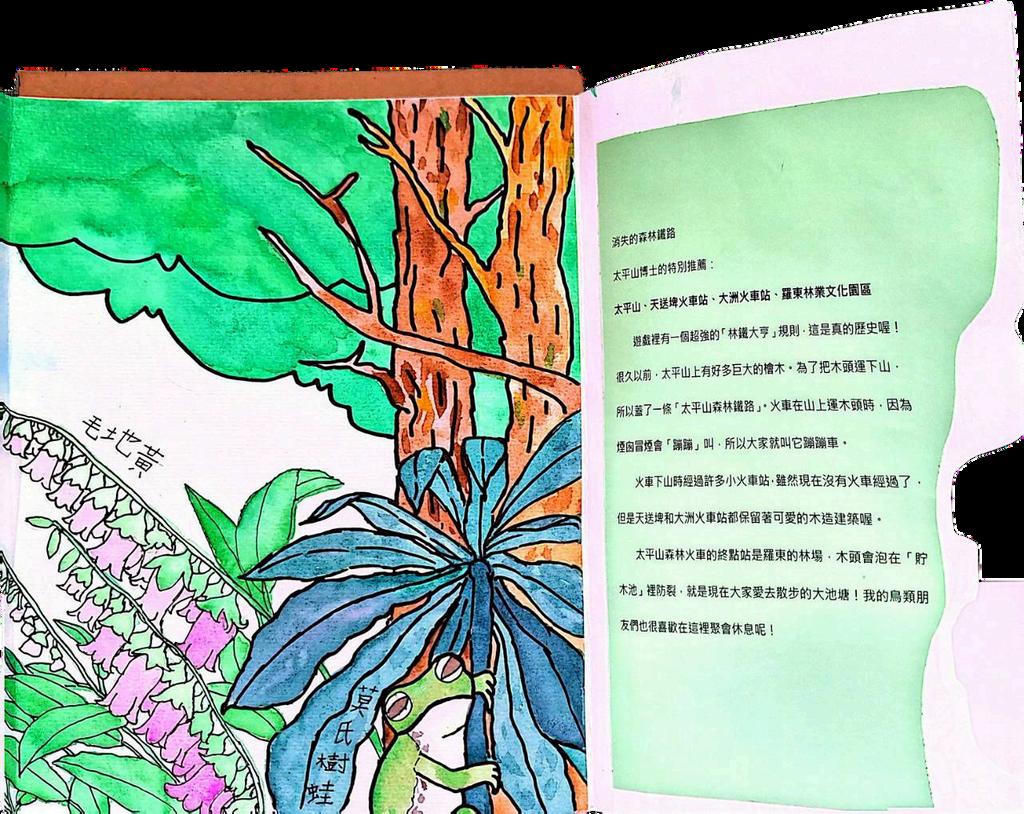 毛地黃
莫氏樹蛙
消失的森林鐵路
太平山博士的特別推薦：
太平山、天送埤火車站、大洲火車站、羅東林業文化園區
遊戲裡有一個超強的「林鐵大亨」規則，這是真的歷史喔！
很久以前，太平山上有好多巨大的檜木。為了把木頭運下山，
所以蓋了一條「太平山森林鐵路」。火車在山上運木頭時，因為
煙囪冒煙會「蹦蹦」叫，所以大家就叫它蹦蹦車。
火車下山時經過許多小火車站，雖然現在沒有火車經過了，
但是天送埤和大洲火車站都保留著可愛的木造建築喔。
太平山森林火車的終點站是羅東的林場，木頭會泡在「貯
木池」裡防裂，就是現在大家愛去散步的大池塘！我的鳥類朋
友們也很喜歡在這裡聚會休息呢！